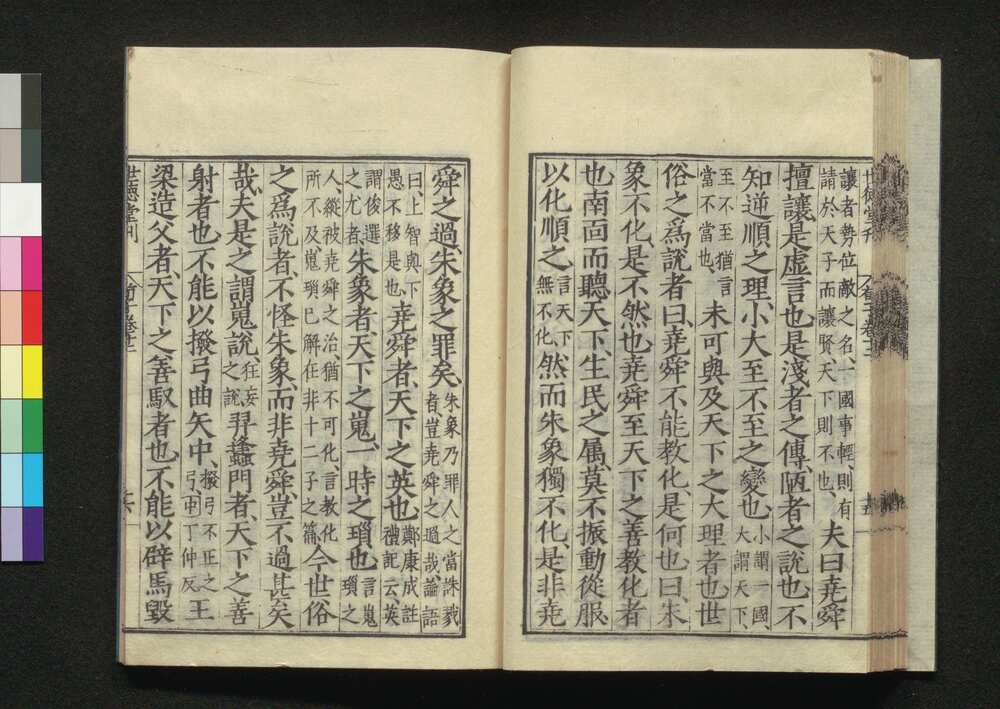 讓者勢位敵之名、一國事輕、則有
請於天子而讓賢、天下則不也、夫曰堯舜
擅讓、是虛言也、是淺者之傳、陋者之說也、不
知逆順之理、小大至不至之變也、小謂一國、大謂天下、
至不至猶言當不當也、未可與及天下之大理者也、世
俗之爲說者曰、堯舜不能敎化、是何也、曰、朱
象不化、是不然也、堯舜至天下之善敎化者
也、南面而聽天下、生民之屬、莫不振動從服、
以化順之、言天下無不化、然而朱象獨不化、是非堯
舜之過、朱象之罪矣、朱象乃罪人之當誅戮者、豈堯舜之過哉、論語
曰、上智與下愚不移是也、堯舜者、天下之英也、鄭康成註禮記云、英
謂俊選之尤者、朱象者、天下之嵬、一時之瑣也、言嵬瑣之
人、縱被堯舜之治、猶不可化、言敎化所不及、嵬瑣已解在非十二子之篇、今世俗
之爲說者、不怪朱象、而非堯舜、豈不過甚矣
哉、夫是之謂嵬說、狂妄之說、羿蠭門者、天下之善
射者也、不能以撥弓曲矢中、撥弓不正之弓、中丁仲反、王
梁造父者、天下之善馭者也、不能以辟馬毀
世德堂刊